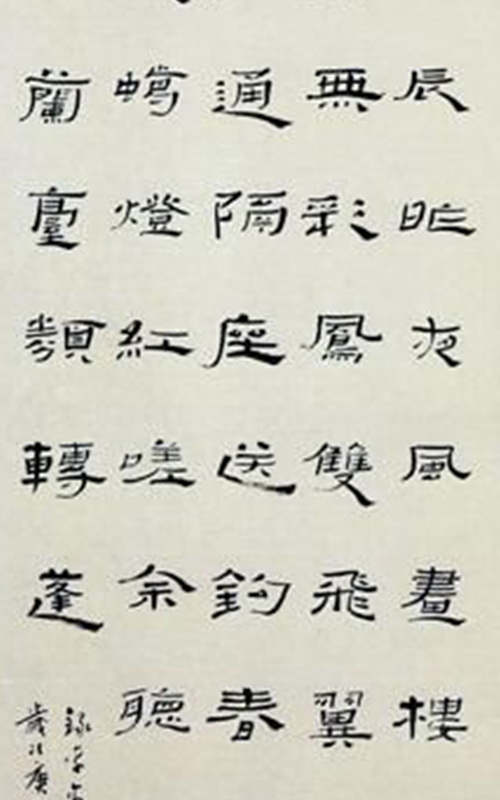 辰昨夜風畫樓
無彩鳳雙飛翼
通隔座送鈎春
蠟燈紅嗟余聽
蘭臺類轉蓬
錄李商
歲次庚